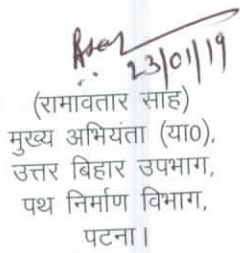 23/01/19
(रामावतार साह)
मुख्य अभियंता (या०),
उत्तर बिहार उपभाग,
पथ निर्माण विभाग,
पटना।